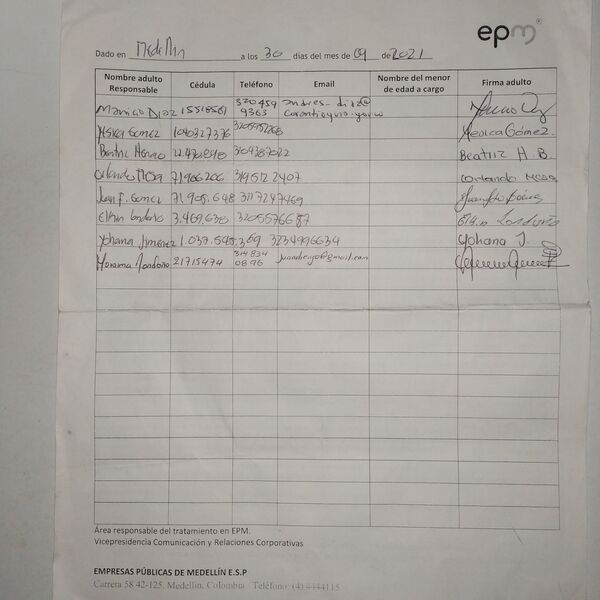 epm®
Dado en Medellin a los 30 dias del mes de 09 de 2021
Nombre adulto Responsable Cédula Teléfono Email Nombre del menor de edad a cargo Firma adulto
Mauricio Diaz 15518561 320459 9363 andres_diaz@
Yesica Gomez 1040327376 Yesica Gómez.
Beatriz Henao 3104387022 Beatriz H.B.
Orlando Mesa 71966266 3195122407 Orlando Mesa
Juan F. Gomez 71.905.648 3117247469
Elkin Londoño 3.469,630 3205576687 Elkin Londoño
Yohana Jimenez 1.037.545,369 3234996634 Yohana J.
Londoño 21715474 314834 0896 juandiego@gmail.com
Área responsable del tratamiento en EPM.
Vicepresidencia Comunicación y Relaciones Corporativas
EMPRESAS PÚBLICAS DE MEDELLÍN E.S.P
Carrera 58 42-125. Medellín, Colombia Teléfono: (4) 4444115